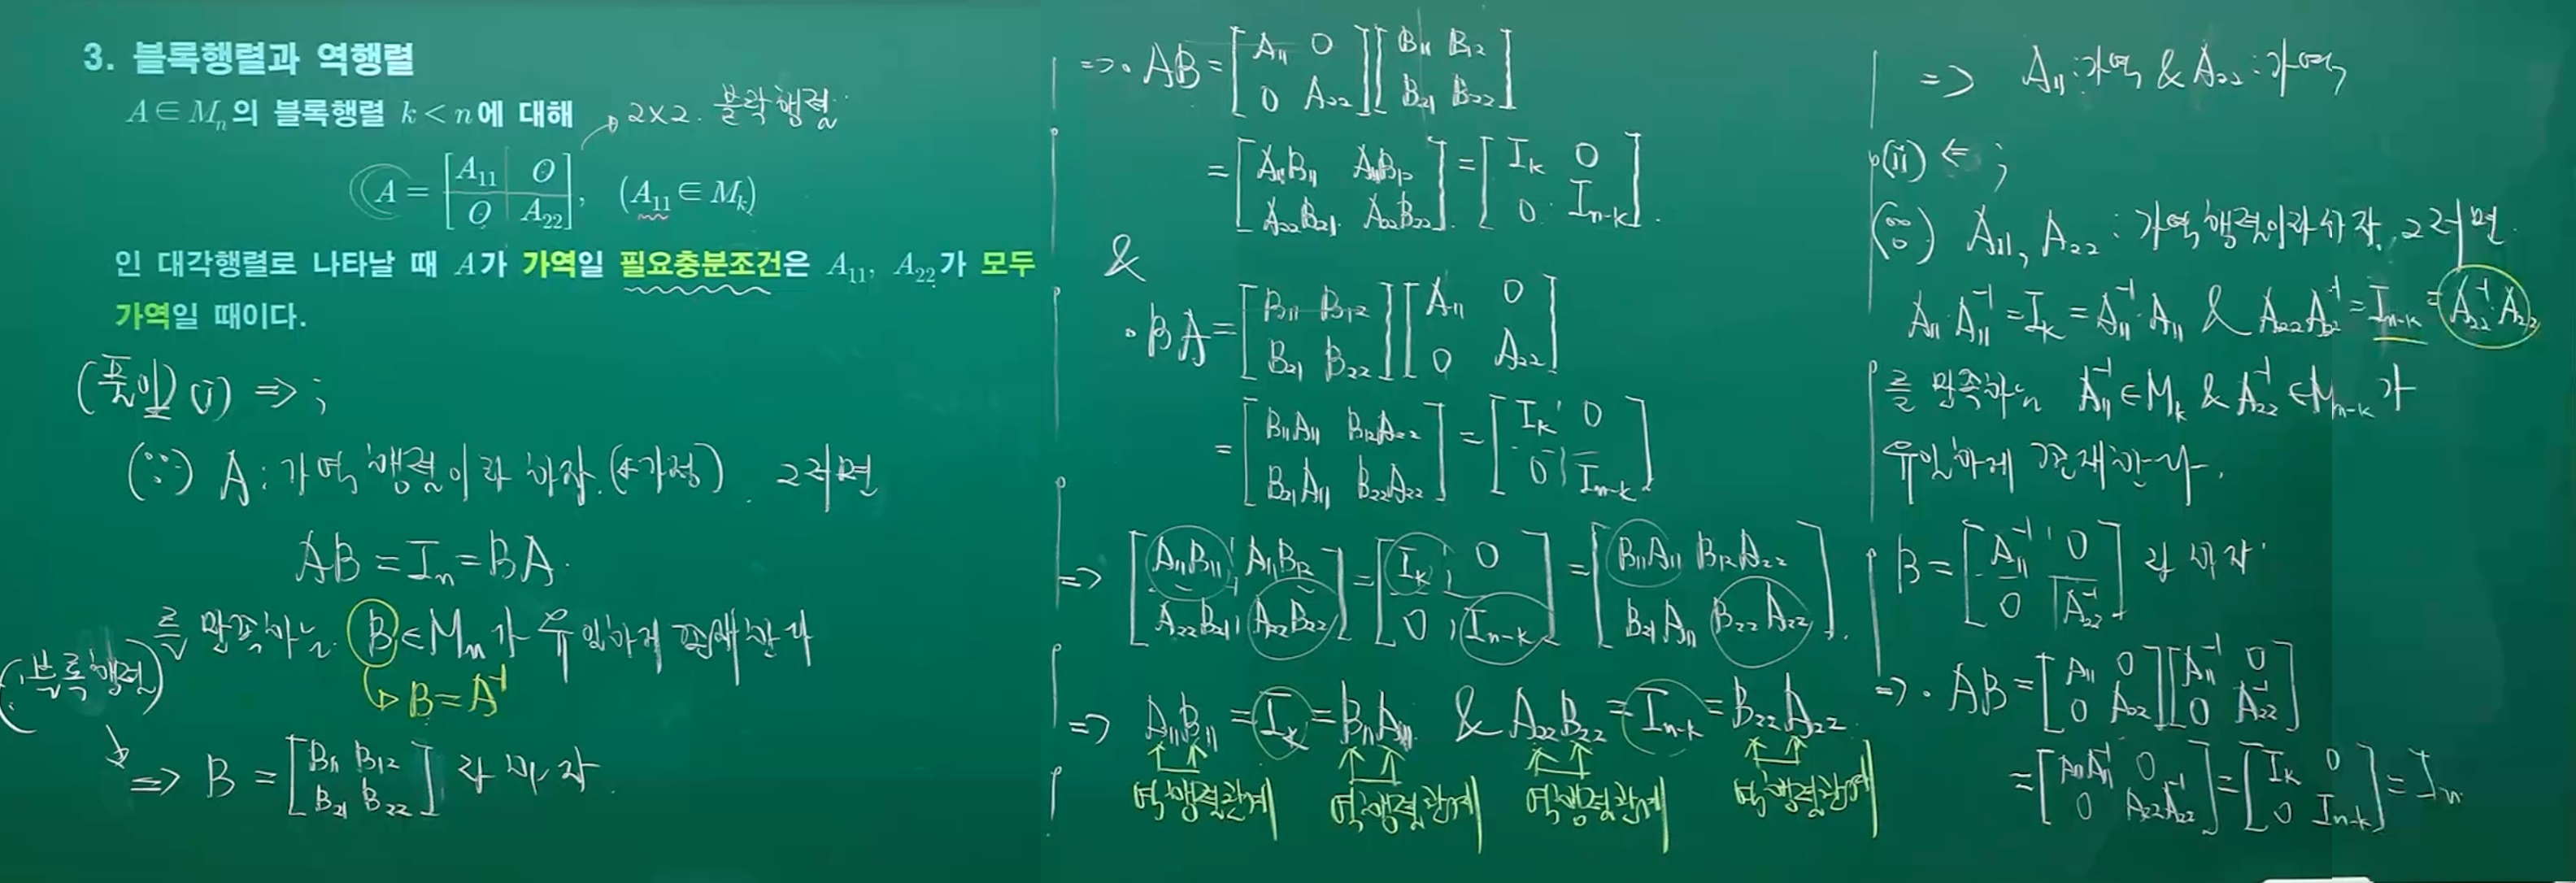 3. 블록행렬과 역행렬
A ∈ Mₙ의 블록행렬 k < n에 대해
→ 2×2. 블락행렬
A = [A₁₁ O; O A₂₂], (A₁₁ ∈ Mₖ)
인 대각행렬로 나타날 때 A가 가역일 필요충분조건은 A₁₁, A₂₂가 모두
가역일 때이다.
(풀이) (i) => ;
(∵) A : 가역행렬이라 하자. (←가정). 그러면
AB = Iₙ = BA.
를 만족하는 B ∈ Mₙ가 유일하게 존재한다
→ B = A⁻¹
(블록행렬)
=> B = [B₁₁ B₁₂; B₂₁ B₂₂] 라 하자.
=> · AB = [A₁₁ 0; 0 A₂₂][B₁₁ B₁₂; B₂₁ B₂₂]
= [A₁₁B₁₁ A₁₁B₁₂; A₂₂B₂₁ A₂₂B₂₂] = [Iₖ 0; 0 Iₙ₋ₖ].
&
· BA = [B₁₁ B₁₂; B₂₁ B₂₂][A₁₁ 0; 0 A₂₂]
= [B₁₁A₁₁ B₁₂A₂₂; B₂₁A₁₁ B₂₂A₂₂] = [Iₖ 0; 0 Iₙ₋ₖ]
=> [A₁₁B₁₁ A₁₁B₁₂; A₂₂B₂₁ A₂₂B₂₂] = [Iₖ 0; 0 Iₙ₋ₖ] = [B₁₁A₁₁ B₁₂A₂₂; B₂₁A₁₁ B₂₂A₂₂].
=> A₁₁B₁₁ = Iₖ = B₁₁A₁₁ & A₂₂B₂₂ = Iₙ₋ₖ = B₂₂A₂₂.
역행렬관계 역행렬관계 역행렬관계 역행렬관계
=> A₁₁ : 가역 & A₂₂ : 가역
(ii) ⇐ ;
(∵) A₁₁, A₂₂ : 가역행렬이라 하자. 그러면.
A₁₁·A₁₁⁻¹ = Iₖ = A₁₁⁻¹·A₁₁ & A₂₂A₂₂⁻¹ = Iₙ₋ₖ = A₂₂⁻¹·A₂₂
를 만족하는 A₁₁⁻¹ ∈ Mₖ & A₂₂⁻¹ ∈ Mₙ₋ₖ가
유일하게 존재한다.
B = [A₁₁⁻¹ 0; 0 A₂₂⁻¹] 라 하자
=> · AB = [A₁₁ 0; 0 A₂₂][A₁₁⁻¹ 0; 0 A₂₂⁻¹]
= [A₁₁A₁₁⁻¹ 0; 0 A₂₂A₂₂⁻¹] = [Iₖ 0; 0 Iₙ₋ₖ] = Iₙ.